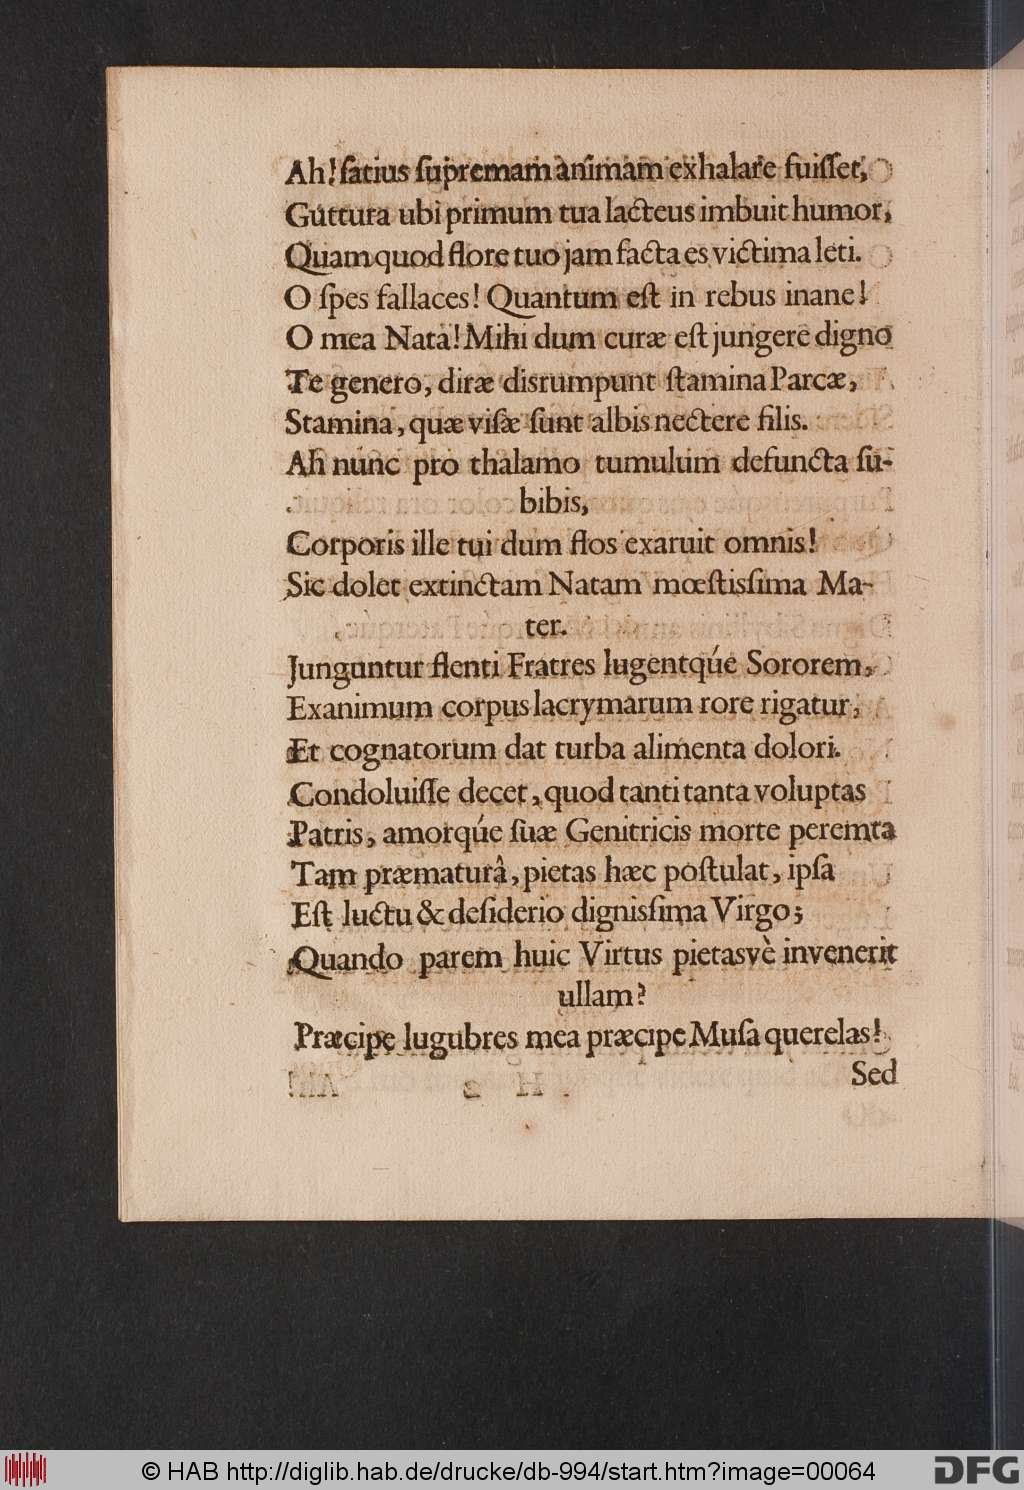 Ah! ſatius ſupremam animam exhalare fuiſſet,
Guttura ubi primum tua lacteus imbuit humor,
Quam quod flore tuo jam facta es victima leti.
O ſpes fallaces! Quantum eſt in rebus inane!
O mea Nata! Mihi dum curæ eſt jungere digno
Te genero, diræ disrumpunt ſtamina Parcæ,
Stamina, quæ viſæ ſunt albis nectere filis.
Ah nunc pro thalamo tumulum defuncta ſu-
bibis,
Corporis ille tui dum flos exaruit omnis!
Sic dolet extinctam Natam mœſtisſima Ma-
ter.
Junguntur flenti Fratres lugentq́ue Sororem,
Exanimum corpus lacrymarum rore rigatur,
Et cognatorum dat turba alimenta dolori.
Condoluiſſe decet, quod tanti tanta voluptas
Patris, amorq́ue ſuæ Genitricis morte peremta
Tam præmaturâ, pietas hæc poſtulat, ipſa
Eſt luctu & deſiderio dignisſima Virgo;
Quando parem huic Virtus pietasvè invenerit
ullam?
Præcipe lugubres mea præcipe Muſa querelas!
Sed
© HAB http://diglib.hab.de/drucke/db-994/start.htm?image=00064
DFG